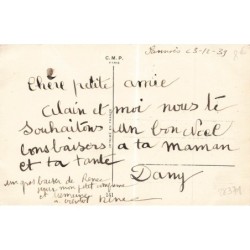 C.M.P.
PARIS
Sannois 23-12-39
Chère petite amie
Alain et moi nous te
souhaitons un bon Noël
bons baisers a ta maman
et ta tante
Dany
un gros baiser de Rene
pour mon petit
et
a bientot Rene